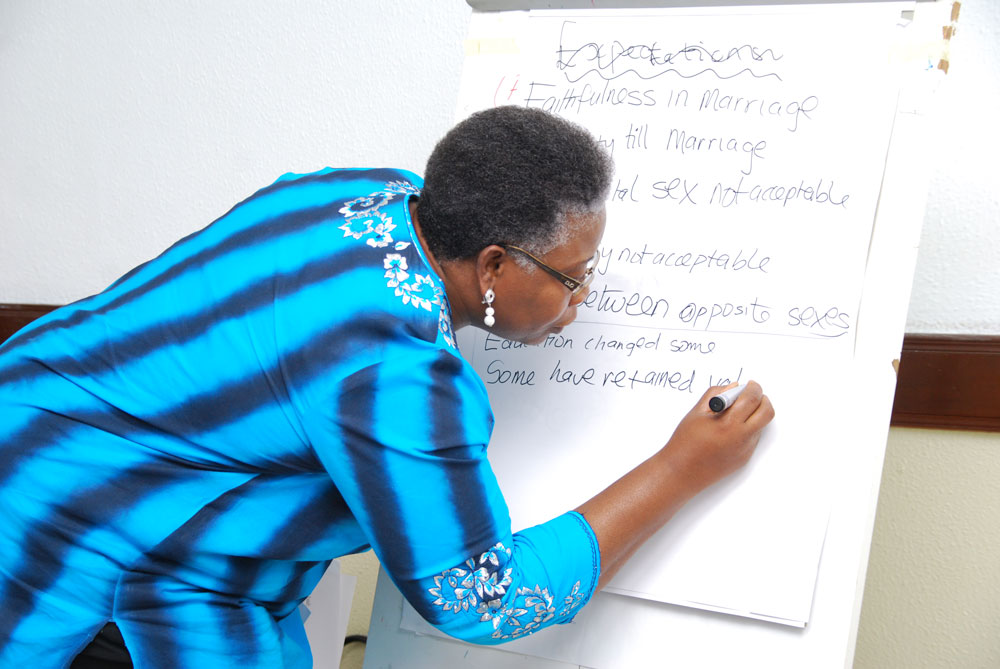 Expectations
Faithfulness in Marriage
till Marriage
sex not acceptable
not acceptable
between opposite sexes
Education changed some
Some have retained